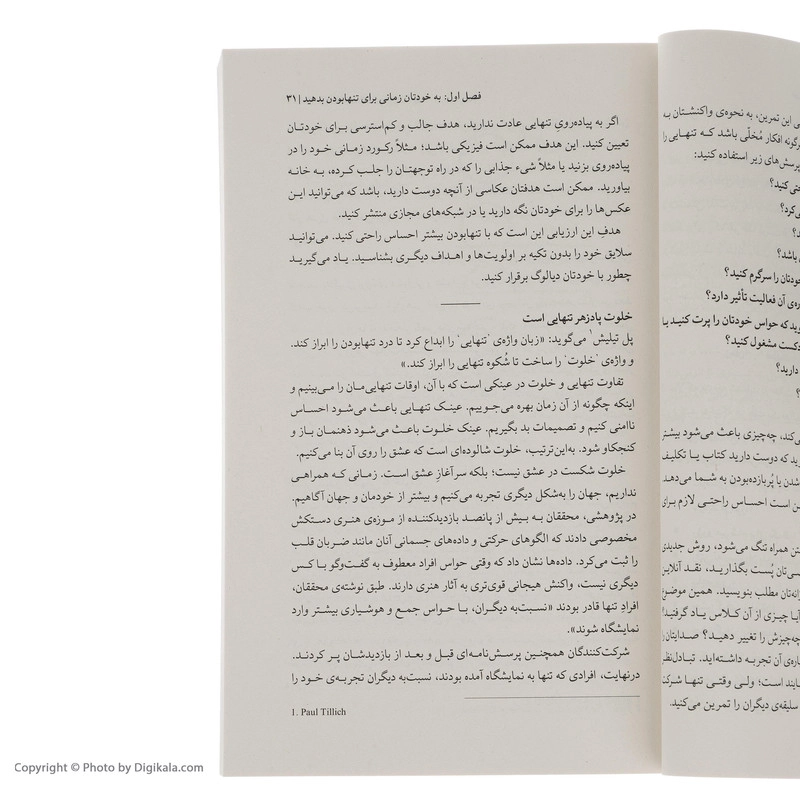 فصل اول: به خودتان زمانی برای تنهابودن بدهید | ۳۱
اگر به پیاده‌رویِ تنهایی عادت ندارید، هدف جالب و کم‌استرسی برای خودتان
تعیین کنید. این هدف ممکن است فیزیکی باشد؛ مثلاً رکورد زمانی خود را در
پیاده‌روی بزنید یا مثلاً شیء جذابی را که در راه توجهتان را جلب کرده، به خانه
بیاورید. ممکن است هدفتان عکاسی از آنچه دوست دارید، باشد که می‌توانید این
عکس‌ها را برای خودتان نگه دارید یا در شبکه‌های مجازی منتشر کنید.
هدفِ این ارزیابی این است که با تنهابودن بیشتر احساس راحتی کنید. می‌توانید
سلایق خود را بدون تکیه بر اولویت‌ها و اهداف دیگری بشناسید. یاد می‌گیرید
چطور با خودتان دیالوگ برقرار کنید.
خلوت پادزهر تنهایی است
پل تیلیش۱ می‌گوید: «زبان واژه‌ی 'تنهایی' را ابداع کرد تا درد تنهابودن را ابراز کند.
و واژه‌ی 'خلوت' را ساخت تا شُکوه تنهایی را ابراز کند.»
تفاوت تنهایی و خلوت در عینکی است که با آن، اوقات تنهایی‌مان را می‌بینیم و
اینکه چگونه از آن زمان بهره می‌جوییم. عینک تنهایی باعث می‌شود احساس
ناامنی کنیم و تصمیمات بد بگیریم. عینک خلوت باعث می‌شود ذهنمان باز و
کنجکاو شود. به‌این‌ترتیب، خلوت شالوده‌ای است که عشق را روی آن بنا می‌کنیم.
خلوت شکست در عشق نیست؛ بلکه سرآغازِ عشق است. زمانی که همراهی
نداریم، جهان را به‌شکل دیگری تجربه می‌کنیم و بیشتر از خودمان و جهان آگاهیم.
در پژوهشی، محققان به بیش از پانصد بازدیدکننده از موزه‌ی هنری دستکش
مخصوصی دادند که الگوهای حرکتی و داده‌های جسمانی آنان مانند ضربان قلب
را ثبت می‌کرد. داده‌ها نشان داد که وقتی حواس افراد معطوف به گفت‌وگو با کس
دیگری نیست، واکنش هیجانی قوی‌تری به آثار هنری دارند. طبق نوشته‌ی محققان،
افرادِ تنها قادر بودند «نسبت‌به دیگران، با حواس جمع و هوشیاری بیشتر وارد
نمایشگاه شوند».
شرکت‌کنندگان همچنین پرسش‌نامه‌ای قبل و بعد از بازدیدشان پر کردند.
درنهایت، افرادی که تنها به نمایشگاه آمده بودند، نسبت‌به دیگران تجربه‌ی خود را
1. Paul Tillich
ی این تمرین، به نحوه‌ی واکنشتان به
گونه افکار مُخلّی باشد که تنهایی را
پرسش‌های زیر استفاده کنید:
حتی کنید؟
کرد؟
باشد؟
خودتان را سرگرم کنید؟
ره‌ی آن فعالیت تأثیر دارد؟
ید که حواس خودتان را پرت کنید یا
دکست مشغول کنید؟
دارید؟
‌کند، چه‌چیزی باعث می‌شود بیشتر
ید که دوست دارید کتاب یا تکلیف
شدن یا پُربازده‌بودن به شما می‌دهد
ن است احساس راحتی لازم برای
تن همراه تنگ می‌شود، روش جدیدی
سی‌تان پُست بگذارید، نقد آنلاین
انه‌تان مطلب بنویسید. همین موضوع
آیا چیزی از آن کلاس یاد گرفتید؟
چه‌چیزش را تغییر دهید؟ صدایتان
ره‌ی آن تجربه داشته‌اید. تبادل‌نظر
ایند است؛ ولی وقتی تنها شرکت
سلیقه‌ی دیگران را تمرین می‌کنید.
Copyright © Photo by Digikala.com